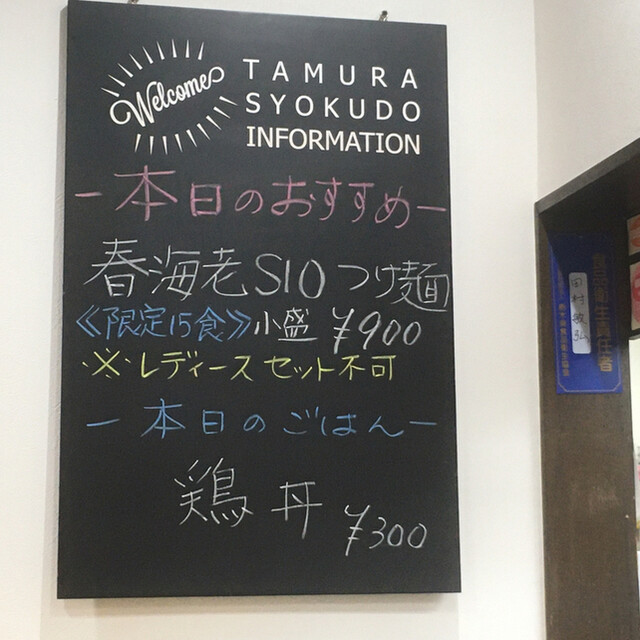 Welcome
TAMURA
SYOKUDO
INFORMATION
ー本日のおすすめー
春海老SIOつけ麺
≪限定15食≫小盛 ¥900
※レディースセット不可
ー本日のごはんー
鶏丼
¥300
食品衛生責任者
田村敏弘